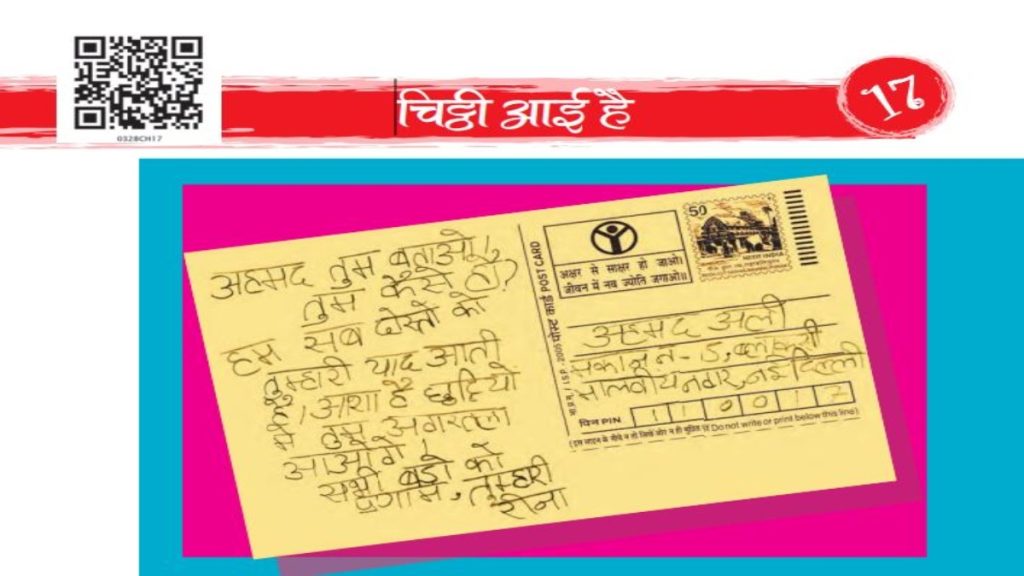 0328CH17
चिट्ठी आई है
17
अहमद तुम बताओ,
तुम कैसे हो?
हम सब दोस्तों को
तुम्हारी याद आती
है। आशा है छुट्टियों
में तुम अगरतला
आओगे।
सभी बड़ों को
प्रणाम, तुम्हारी
रीना
पोस्ट कार्ड POST CARD
अक्षर से साक्षर हो जाओ।
जीवन में नव ज्योति जगाओ॥
50
भारत INDIA
अहमद अली
मकान न.- 5, ब्लॉक
मालवीय नगर, नई दिल्ली
पिन PIN 110017
(इस लाइन के नीचे न तो लिखें और न ही मुद्रित करें Do not write or print below this line)